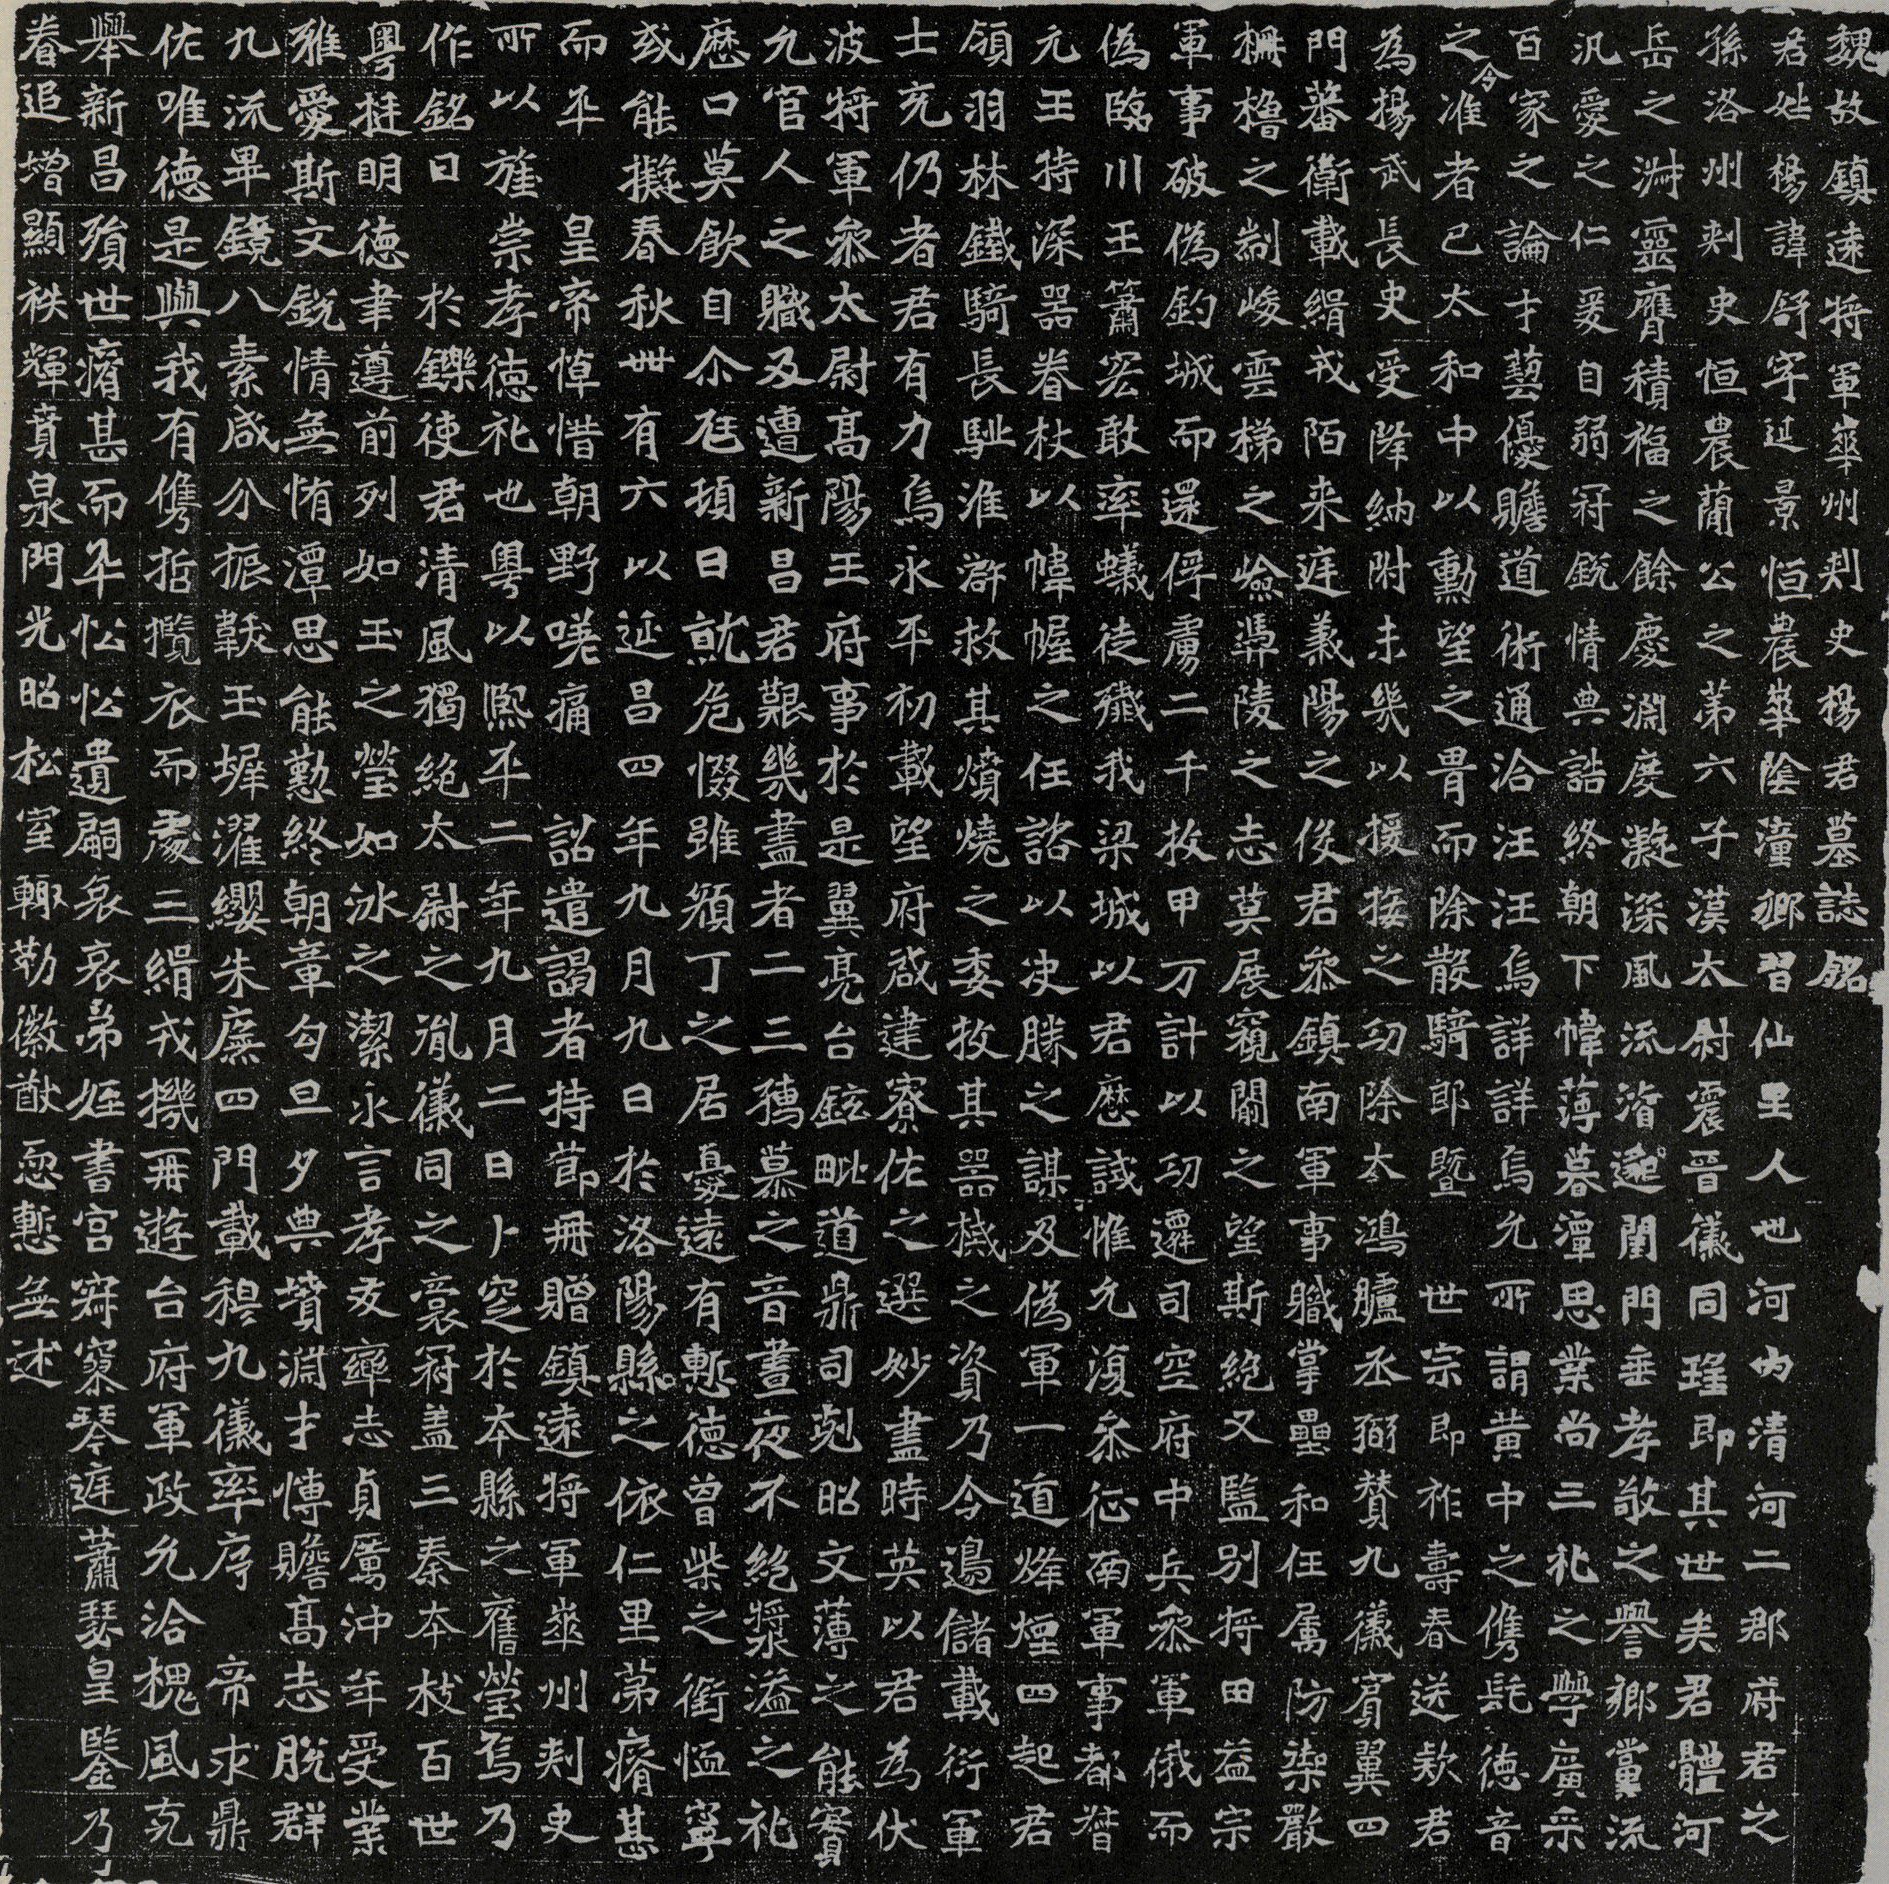 魏故鎮遠將軍華州刺史楊君墓誌銘
君姓楊諱舒字延景恒農華陰潼鄉習仙里人也河內清河二郡府君之
孫洛州刺史恒農蘭公之第六子漢太尉震晉儀同瑤即其世矣君體河
岳之渊靈膺積福之餘慶淵度凝深風流湝邈閨門垂孝敬之譽鄉黨流
汎愛之仁爰自弱冠銳情典誥終朝下幃薄暮潭思業尚三礼之學廣采
百家之論才藝優贍道術通洽汪汪焉詳詳焉允所謂黃中之儁髦德音
之令准者已太和中以勳望之胄而除散騎郎暨世宗即祚壽春送款君
為揚武長史受降納附未幾以援接之功除太鴻臚丞弼贊九儀賓翼四
門蕃衛載緝戎陌来庭義陽之役君叅鎮南軍事職掌壘和任属防禦嚴
栅櫓之制峻雲梯之嶮馮陵之志莫展窺闞之望斯絕又監別将田益宗
軍事破偽釣城而還俘虜二千收甲万計以功遷司空府中兵叅軍俄而
偽臨川王簫宏敢率蟻徒殲我梁城以君歷試惟允復叅征南軍事都督
元王特深器眷杖以幃幄之任諮以决勝之謀及偽軍一道烽煙四起君
領羽林鐵騎長駈淮澨救其燌燒之委收其器械之資乃令邊儲載衍軍
士充仍者君有力焉永平初載望府啓建寮佐之選妙盡時英以君為伏
波將軍叅太尉髙陽王府事於是翼亮台鉉毗道鼎司剋昭文薄之能實
允官人之職及遭新昌君艱幾盡者二三孺慕之音晝夜不絕漿溢之礼
歷口莫飲自尒尫頓日就危惙雖頠丁之居憂遠有慙德曾柴之銜恤寧
或能擬春秋卌有六以延昌四年九月九日於洛陽縣之依仁里苐瘠甚
而卒皇帝悼惜朝野嗟痛詔遣謁者持節冊贈鎮遠將軍華州刺史
所以旌崇孝德礼也粵以熙平二年九月二日卜窆於本縣之舊塋焉乃
作銘曰於鑠使君清風獨絕太尉之胤儀同之裔冠盖三秦本枝百世
粵挺明德聿遵前列如玉之瑩如冰之潔永言孝友率志貞厲沖年受業
雅愛斯文銳情無悋潭思能懃終朝章句旦夕典墳淵才慱贍髙志脫群
九流畢鏡八素咸分振韈玉墀濯纓朱廡四門載穆九儀率序帝求鼎
佐唯德是與我有儁哲攬衣而處三緝戎機再遊台府軍政允洽槐風克
舉新昌殞世瘠甚而卒忪忪遺嗣哀哀弟姪書宮寂寥琴庭蕭瑟皇鑒乃
眷追增顯袟輝賁泉門光昭松室輙勒徽猷恧慙無述